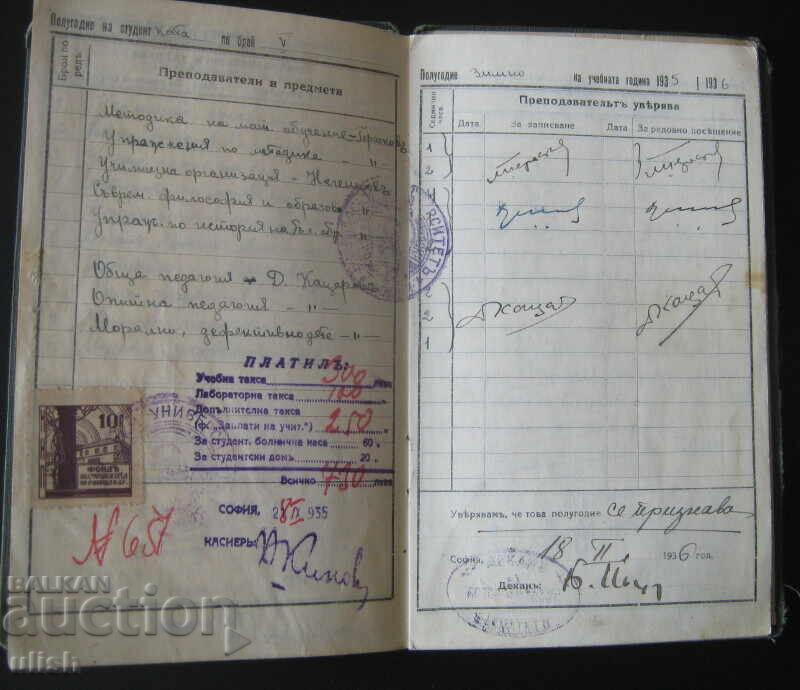 Полугодие на студент ката по брой V
Брой по редъ
Преподаватели и предмети
Методика на мат. обучение - Герасковъ
Упражнения по методика - " -
Училищна организация - Негенцовъ
Съврем. философия и образов. "
Упраж. по история на бълг. обр. "
Обща педагогия - Д. Кацаровъ
Опитна педагогия - " -
Морално дефективно дете - " -
ПЛАТИЛЪ:
Учебна такса 300 лева
Лабораторна такса 100
Допълнителна такса
(ф. „Заплати на учит.") 250
За студент. болнична каса 60
За студентски домъ 20
Всичко 730 лева
СОФИЯ, 1935
КАСИЕРЪ:
№ 657
10
ФОНДЪ
УНИВЕ
РСИТЕТЪ
Полугодие Зимно на учебната година 1935 | 1936
Седмични часа
Преподавательтъ уверява
Дата За записване Дата За редовно посещение
1
2
Д Кацар
Д Кацар
2
1
Уверявамъ, че това полугодие се признава
София, 18 II 1936 год.
Деканъ:
BALKAN
auction
ulish